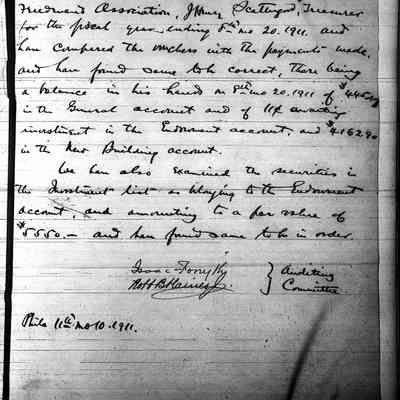 Freedmen's Association, J Henry Scattergood, Treasurer
for the fiscal year ending 8th mo 20. 1911. and
have compared the vouchers with the payments made,
and have found same to be correct, there being
a balance in his hands on 8th mo 20. 1911 of
in the General account and of awaiting
investment in the Endowment account, and $4162.90
in the New Building account.
We have also examined the securities in
the Investment list as belonging to the Endowment
account, and amounting to a par value of
$5550.— and have found same to be in order.
Isaac Forsythe
Robt B Haines Jr
Auditing
Committee
Phila 11th mo 10. 1911.